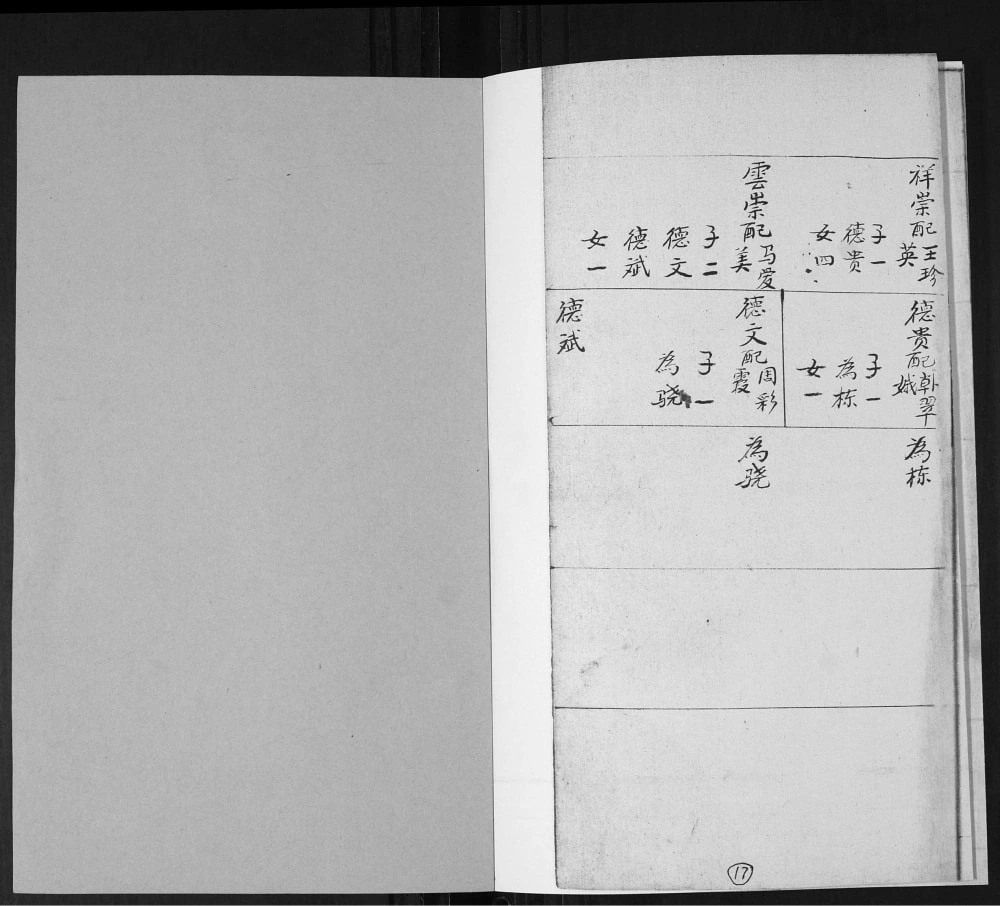 祥崇配王珍英
子一
德贵
女四
雲崇配马爱美
子二
德文
德斌
女一
德贵配韩翠娥
子一
為栋
女一
德文配周彩霞
子一
為骁
德斌
為栋
為骁
17